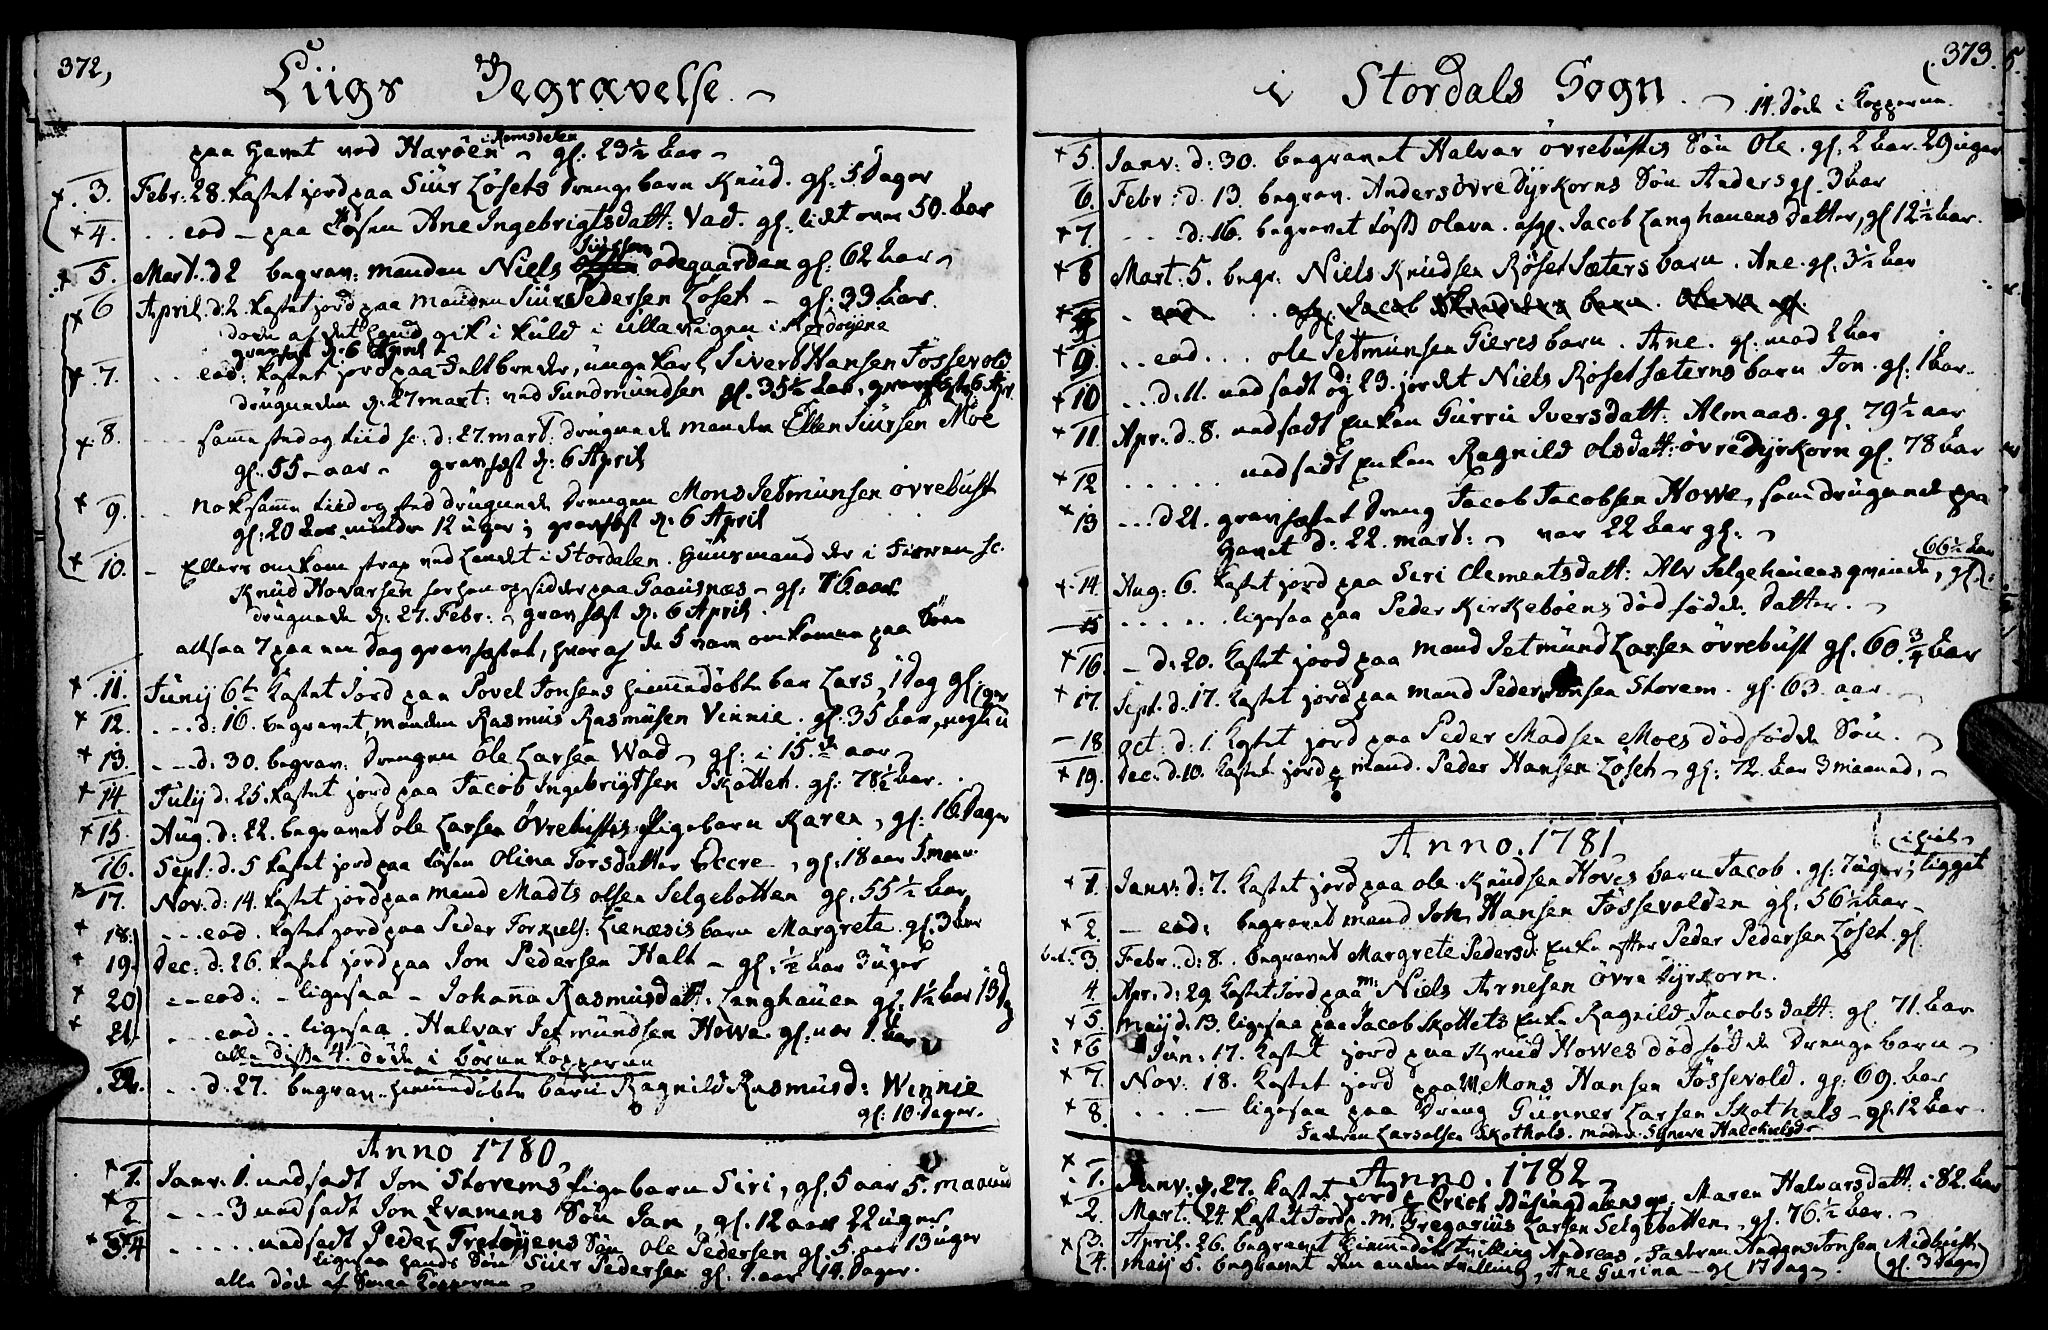 372,
Liigs Begravelse.
paa Havet ved Harøen i Romsdalen gl: 23½ aar
3. Febr: 28. kastet jord paa Siur Løsets Drengebarn Knud. gl: 5 Dager
4. .. eod - paa Løsen Ane Ingebrigtsdatt: Vad. gl: lidt over 50. aar
5. Mart. d 2 begrav: manden Niels ødegaarden gl: 62 aar
6 April. d. 2. kastet jord paa manden Siur Pedersen Løset - gl: 33 aar.
døde af det hand gik i kuld i Ullavigen i Nordøyene
gravfæst d. 6 April
7. .. eod: kastet jord paa unge karl Sivert Hansen Tossevold
drugnede d. 27 mart: ved Gudmundsen gl. 35½ aar, gravfæstet 6 Apr.
8. samme sted og tiid sc: d: 27. mart: drugnede manden Ellen Siursen Moe
gl. 55 - aar - gravfæst d: 6 April
9. .. nok samme tiid og sted drugnede Drengen Mons Jetmunsen øvrebust
gl: 20 aar mindre 12 uger; gravfæst d: 6 April
10. - Ellers omkom strax ved Landet i Stordalen. Huusmand der i
Knud Hovarsen gl: 76 aar
drugnede d: 27. Febr: - gravfæst d: 6 April.
altsaa 7 paa een Dag gravfæstet, hvor af de 5 vare omkomne paa Søen
11. Junij 6te kastet Jord paa Povel Jonsens hiemmedøbte barn Lars, 1 Dag gl:
12. ... d: 16. begravet manden Rasmus Rasmusen Vinnie. gl: 35 aar, uger
13. --- d: 30. begrav: Drengen Ole Larsen Wad - gl: i 15.de aar
14 Julij d: 25. kastet jord paa Jacob Ingebrigtsen Skotteh. gl: 78½ aar.
15. Aug. d: 22. begravet ole Larsen Øvrebustis Pigebarn Karen, gl: 16 Dager
16. Sept: d. 5 kastet jord paa tøsen Olina Torsdatter Occre, gl: 18 aar 5 maan.
17. Nov. d: 14. kastet jord paa mand Madts olsen Selgebotten gl. 55½ aar
18. --- eod. kastet jord paa Peder Tormels: Lienæsis barn Margrete. gl. 3 aar
19. Dec: d: 26. kastet jord paa Jon Pedersen Halt - gl: ½ aar 3 uger
20 --- eod: - ligesaa - Johanna Rasmusdatt: Langhauen gl. 1½ aar 13 D
21. ... eod .. ligesaa. Halvar Jetmundsen Howe. gl: nær 1. aar
alle disse 4. døde i børne kopperne
22. .. d: 27. begrav. hiemmedøbte barn Ragnild Rasmusd: Winnie
gl: 10 Dager.
Anno 1780
1. Janv: 1. nedsadt Jon Storems Pigebarn Siri, gl. 5 aar 5. maaned
2 --- 3 nedsadt Jon Kvamens Søn Jan, gl. 12 aar 22 uger.
3.4 ..... nedsadt Peder Tretøyens Søn Ole Pedersen gl. 5. aar 13 uger
ligesaa hands Søn Siur Pedersen gl. 1. aar 14. Dager.
alle døde af Smaa Kopperne
373.
i Stordals Sogn.
14. døde i Kopperne.
5. Janv: d: 30. begravet Halvar øvrebustis Søn Ole. gl. 2 aar. 29 uger
6. Febr: d. 13. begrav. Anders Øvre Dyrkorns Søn Anders gl. 3 aar
7 .. d: 16. begravet tøs Olava. afg. Jacob Langhauens datter, gl 12½ aar.
8 Mart: 5. begr. Niels Knudsen Røset Sæters barn. Ane. gl. 3½ aar
9. .. eod ... ole Jetmunsen Gieres barn. Ane. gl: med 2 aar
10 ... d: 11. nedsadt og 23. jordet Niels Røset Sæterns barn Jon. gl: 1 aar.
11. Apr: d. 8. nedsadt Enken Gurru Iversdatt: Almaas. gl. 79½ aar
12 ...... nedsadt Enken Ragnild Olsdatt: øvre Dyrkorn gl. 78 aar
13 --- d 21. gravfæstet Dreng Jacob Jacobsen Howe, som drugnede paa
Havet d: 22. mart: var 22 aar gl:
14. Aug: 6. kastet jord paa Seri Clementsdatt: Alv Selgehauens qvinde, gl: 66½ aar
15 ...... ligesaa paa Peder Kirkebøens død fødde Datter.
16. - d: 20. kastet jord paa mand Jetmund Larsen øvrebust gl. 60¾ aar
17. Sept. d. 17. kastet jord paa mand Peder Jonsen Storem. gl: 63. aar
18. Oct: d: 1. kastet jord paa Peder Madsen Moes død fødde Søn.
19. Dec: d. 10. kastet jord p mand. Peder Hansen Løset - gl: 72. aar 3 maaned.
Anno. 1781
1. Janv: d: 7. kastet jord paa ole Knudsen Hoves barn Jacob. gl: 7 uger; ligget i hiel
2. - eod: begravet mand Joh. Hansen Tossevolden gl. 56½ aar
3. Febr: d: 8. begravet Margrete Pedersd: Enke efter Peder Pedersen Løset. gl
4. Apr: d: 29. kastet Jord paa m. Niels Arnesen Øvre Dyrkorn.
5 Maij d: 13. ligesaa paa Jacob Skottets Enke Ragnild Jacobsdatt: gl. 71. aar
6 Jun: 17. kastet jord paa Knud Howes død fødde Drengebarn
7. Nov: 18. kastet jord paa M. Mons Hansen Tossevold. gl: 69. aar
8. .... - ligesaa paa Dreng Gunner Larsen Skothals - gl: 12 aar.
Faderen Lars olsen Skothals. moder. Synneva
Anno. 1782
1. Janv: d. 27. kastet jord p Erich Døsingdalens qv. Maren Halvarsdatt: i 82. aar
2. Mart: 24. kastet Jord p. m. Gregarius Larsen Selgebotten, gl. 76½ aar.
3. April. 26. begravet hiemmedøbt tvilling Andreas. Faderen Anders Jonsen Midbust
4. Maij 5. begravet den anden tvilling, Ane Gurina - gl 17 Dage. (gl. 3 Dager)